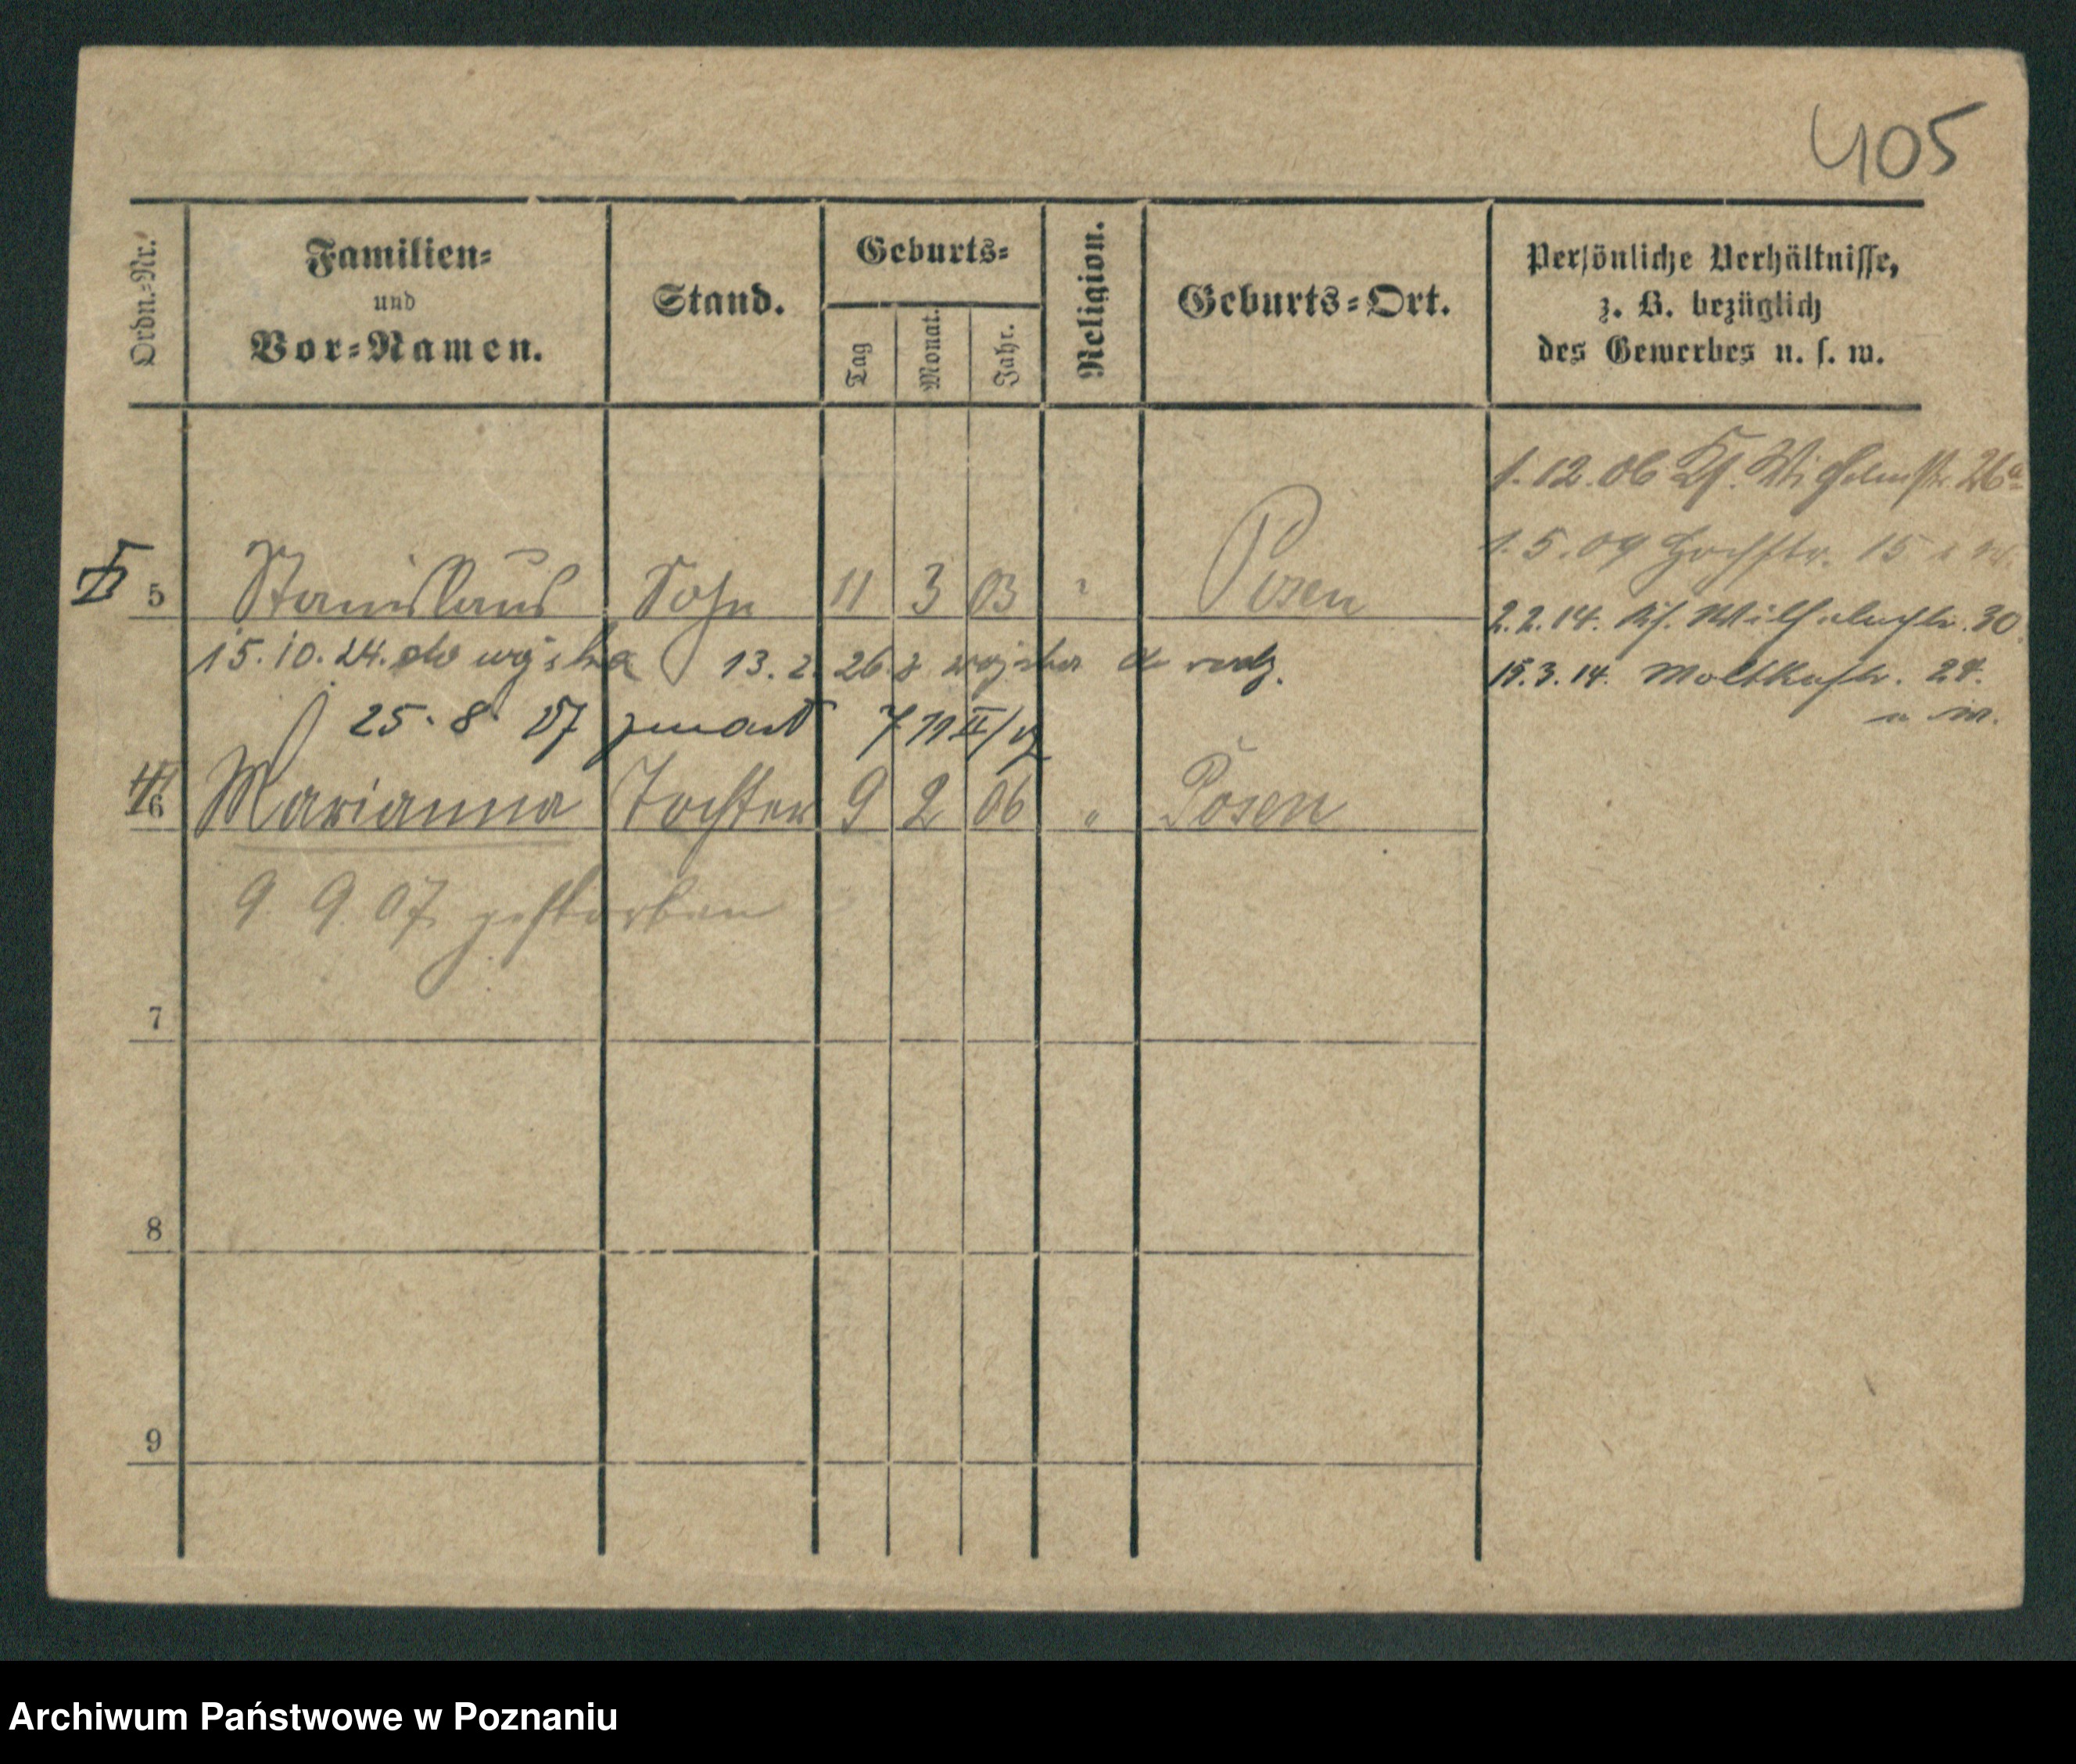 405
Ordn.-Nr.
Familien-
und
Vor-Namen.
Stand.
Geburts-
Tag
Monat.
Jahr.
Religion.
Geburts-Ort.
Persönliche Verhältnisse,
z. B. bezüglich
des Gewerbes u. s. w.
1.12.06 Kl. Wilhelmstr. 26a
1.5.09 Hochstr. 15
5 Stanislaus Sohn 11 3 03 " Posen
2.2.14. Wilhelmstr. 30.
15.10.24. do wojska 13.2.26 z wojska do rodz.
15.3.14. Moltkestr. 24.
25.8.27 zmarł
6 Marianna Tochter 9 2 06 " Posen
9. 9. 07. gestorben
7
8
9
Archiwum Państwowe w Poznaniu